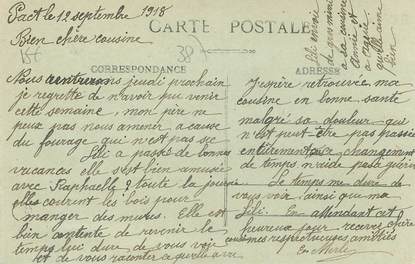 Pact le 12 septembre 1918
CARTE POSTALE
Bien chère cousine
38
CORRESPONDANCE
ADRESSE
Nous rentrerons jeudi prochain
je regrette de n'avoir pu venir
cette semaine, mon père ne
peux pas nous amener a cause
du fourage qui n'est pas sec
Lili a passé de bonnes
vacances elle s'est bien amusée
avec Raphaelle toute la journée
elles courent les bois pour
manger des mures. Elle est
bien contente de revenir le
temps lui dure de vous voir
et de vous raconter ce qu'elle a vu
J'espère retrouvée ma
cousine en bonne santé
malgré sa douleur qui
n'est peut être pas passée
entièrement changement
de temps n'aide pas a guérir
Le temps me dure de
vous voir ainsi que ma
Lili. En attendant cet
heureux jour recevez chère
cousines respectueuses amitiés
Lili envoie
a sa cousine
bien